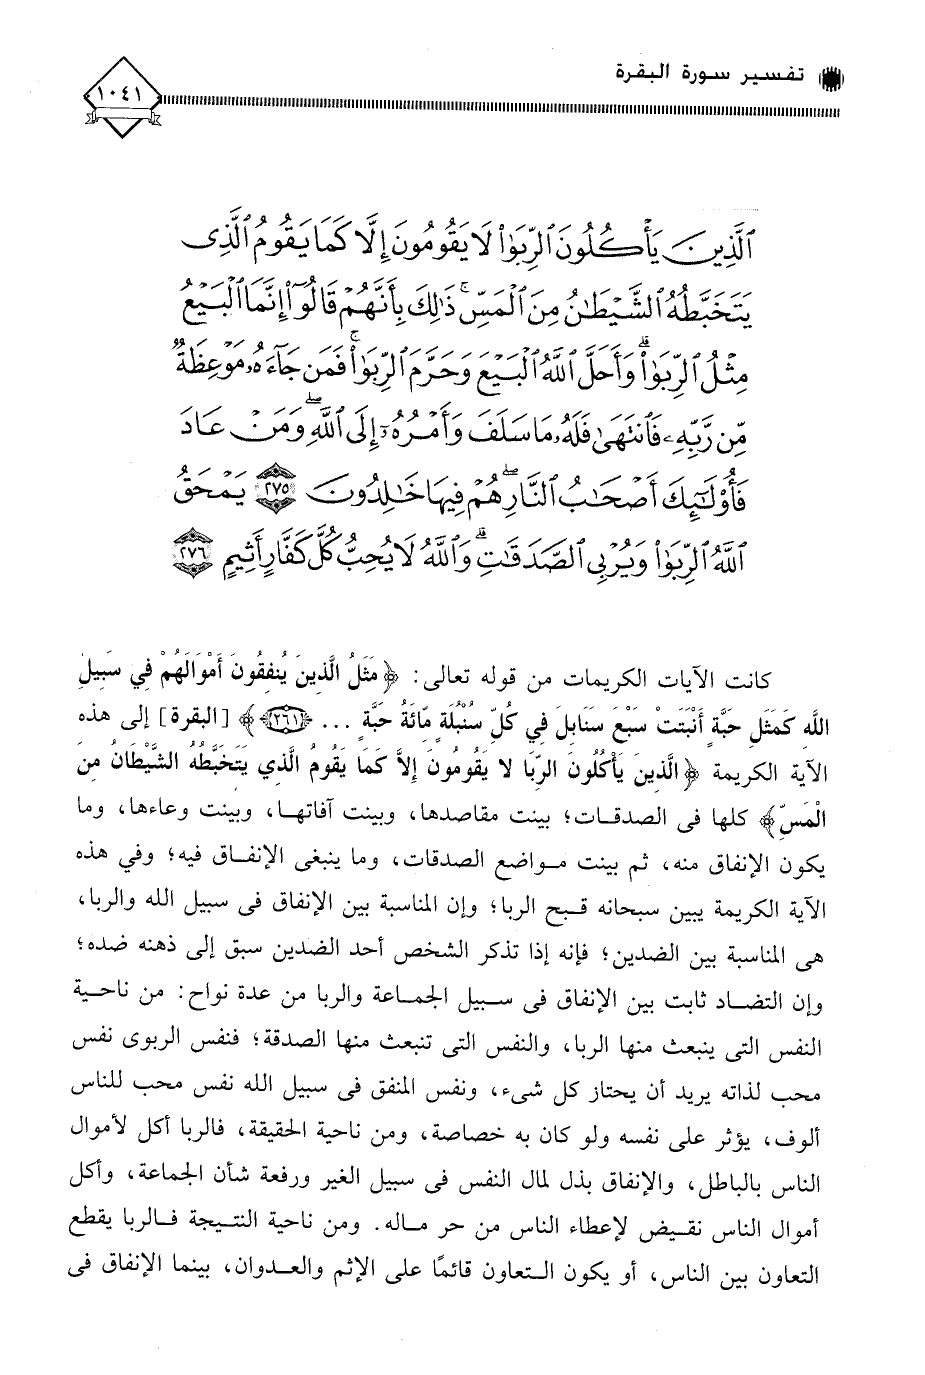 تفسير سورة البقرة
١٠٤١
ٱلَّذِينَ يَأْكُلُونَ ٱلرِّبَوٰا۟ لَا يَقُومُونَ إِلَّا كَمَا يَقُومُ ٱلَّذِى
يَتَخَبَّطُهُ ٱلشَّيْطَـٰنُ مِنَ ٱلْمَسِّ ۚ ذَٰلِكَ بِأَنَّهُمْ قَالُوٓا۟ إِنَّمَا ٱلْبَيْعُ
مِثْلُ ٱلرِّبَوٰا۟ ۗ وَأَحَلَّ ٱللَّهُ ٱلْبَيْعَ وَحَرَّمَ ٱلرِّبَوٰا۟ ۚ فَمَن جَآءَهُۥ مَوْعِظَةٌ
مِّن رَّبِّهِۦ فَٱنتَهَىٰ فَلَهُۥ مَا سَلَفَ وَأَمْرُهُۥٓ إِلَى ٱللَّهِ ۖ وَمَنْ عَادَ
فَأُو۟لَـٰٓئِكَ أَصْحَـٰبُ ٱلنَّارِ ۖ هُمْ فِيهَا خَـٰلِدُونَ ٢٧٥ يَمْحَقُ
ٱللَّهُ ٱلرِّبَوٰا۟ وَيُرْبِى ٱلصَّدَقَـٰتِ ۗ وَٱللَّهُ لَا يُحِبُّ كُلَّ كَفَّارٍ أَثِيمٍ ٢٧٦
كانت الآيات الكريمات من قوله تعالى: ﴿مَثَلُ الَّذِينَ يُنفِقُونَ أَمْوَالَهُمْ فِي سَبِيلِ
اللَّهِ كَمَثَلِ حَبَّةٍ أَنْبَتَتْ سَبْعَ سَنَابِلَ فِي كُلِّ سُنْبُلَةٍ مِّائَةُ حَبَّةٍ ... ﴿٢٦١﴾﴾ [البقرة] إلى هذه
الآية الكريمة ﴿الَّذِينَ يَأْكُلُونَ الرِّبَا لا يَقُومُونَ إِلاَّ كَمَا يَقُومُ الَّذِي يَتَخَبَّطُهُ الشَّيْطَانُ مِنَ
الْمَسِّ﴾ كلها فى الصدقات؛ بينت مقاصدها، وبينت آفاتها، وبينت وعاءها، وما
يكون الإنفاق منه، ثم بينت مواضع الصدقات، وما ينبغى الإنفاق فيه؛ وفي هذه
الآية الكريمة يبين سبحانه قبح الربا؛ وإن المناسبة بين الإنفاق فى سبيل الله والربا،
هى المناسبة بين الضدين؛ فإنه إذا تذكر الشخص أحد الضدين سبق إلى ذهنه ضده؛
وإن التضاد ثابت بين الإنفاق فى سبيل الجماعة والربا من عدة نواح: من ناحية
النفس التى ينبعث منها الربا، والنفس التى تنبعث منها الصدقة؛ فنفس الربوى نفس
محب لذاته يريد أن يحتاز كل شىء، ونفس المنفق فى سبيل الله نفس محب للناس
ألوف، يؤثر على نفسه ولو كان به خصاصة، ومن ناحية الحقيقة، فالربا أكل لأموال
الناس بالباطل، والإنفاق بذل لمال النفس فى سبيل الغير ورفعة شأن الجماعة، وأكل
أموال الناس نقيض لإعطاء الناس من حر ماله. ومن ناحية النتيجة فالربا يقطع
التعاون بين الناس، أو يكون التعاون قائمًا على الإثم والعدوان، بينما الإنفاق فى